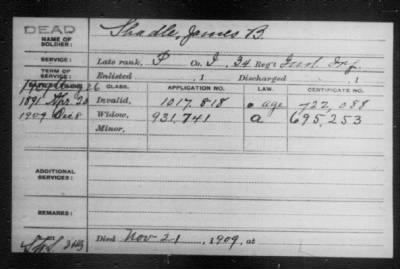 DEAD
NAME OF SOLDIER: Shadle, James B.
SERVICE: Late rank, P Co. I, 34 Reg't Ind Inf.
TERM OF SERVICE: Enlisted , 1 Discharged , 1
CLASS. APPLICATION NO. LAW. CERTIFICATE NO.
1891 Apr. 20 Invalid, 1017,818 age 722,088
1909 Dec 8 Widow, 931,741 a 695,253
Minor,
ADDITIONAL SERVICES:
REMARKS:
Died Nov 21 , 1909, at